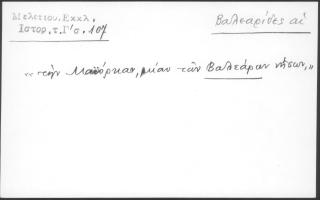 Μελετίου, Εκκλ.
Ιστορ. τ. Γ΄ σ. 107
Βαλεαρίδες αἱ
« τὴν Μαϊόρκαν, μίαν τῶν Βαλεάρων νήσων, »